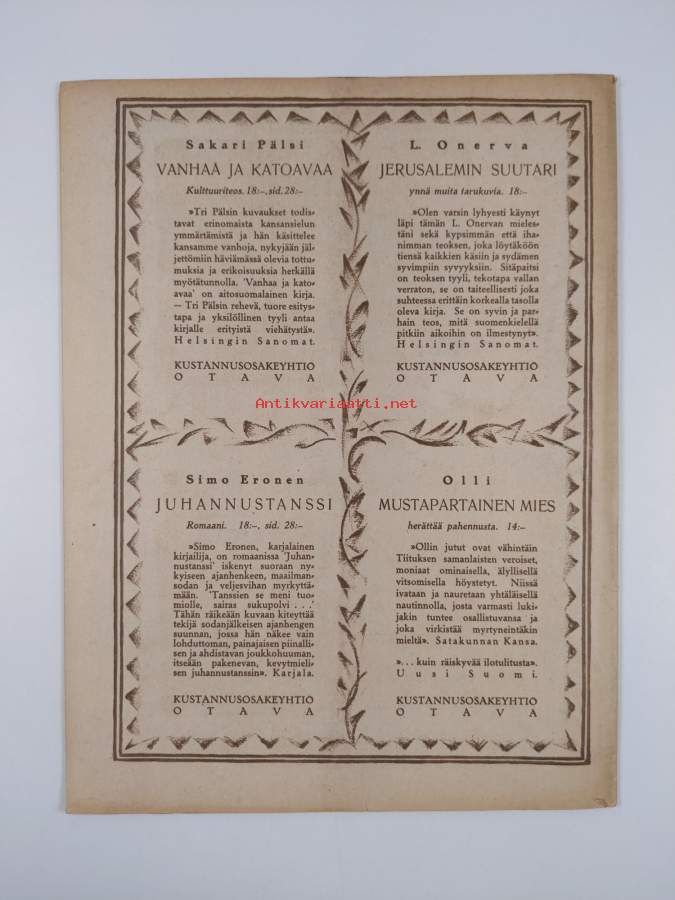 Sakari Pälsi
VANHAA JA KATOAVAA
Kulttuuriteos. 18:–, sid. 28:–
»Tri Pälsin kuvaukset todis-
tavat erinomaista kansansielun
ymmärtämistä ja hän käsittelee
kansamme vanhoja, nykyjään jäl-
jettömiin häviämässä olevia tottu-
muksia ja erikoisuuksia herkällä
myötätunnolla. 'Vanhaa ja kato-
avaa' on aitosuomalainen kirja.
— Tri Pälsin rehevä, tuore esitys-
tapa ja yksilöllinen tyyli antaa
kirjalle erityistä viehätystä».
Helsingin Sanomat.
KUSTANNUSOSAKEYHTIÖ
OTAVA
L. Onerva
JERUSALEMIN SUUTARI
ynnä muita tarukuvia. 18:–
»Olen varsin lyhyesti käynyt
läpi tämän L. Onervan mieles-
täni sekä kypsimmän että iha-
nimman teoksen, joka löytäköön
tiensä kaikkien käsiin ja sydämen
syvimpiin syvyyksiin. Sitäpaitsi
on teoksen tyyli, tekotapa vallan
verraton, se on taiteellisesti joka
suhteessa erittäin korkealla tasolla
oleva kirja. Se on syvin ja par-
hain teos, mitä suomenkielellä
pitkiin aikoihin on ilmestynyt».
Helsingin Sanomat.
KUSTANNUSOSAKEYHTIÖ
OTAVA
Antikvariaatti.net
Simo Eronen
JUHANNUSTANSSI
Romaani. 18:–, sid. 28:–
»Simo Eronen, karjalainen
kirjailija, on romaanissa 'Juhan-
nustanssi' iskenyt suoraan ny-
kyiseen ajanhenkeen, maailman-
sodan ja veljesvihan myrkyttä-
mään. 'Tanssien se meni tuo-
miolle, sairas sukupolvi . . .'
Tähän räikeään kuvaan kiteyttää
tekijä sodanjälkeisen ajanhengen
suunnan, jossa hän näkee vain
lohduttoman, painajaisen piinalli-
sen ja ahdistavan joukkohuuman,
itseään pakenevan, kevytmieli-
sen juhannustanssin». Karjala.
KUSTANNUSOSAKEYHTIÖ
OTAVA
Olli
MUSTAPARTAINEN MIES
herättää pahennusta. 14:–
»Ollin jutut ovat vähintäin
Tiituksen samanlaisten veroiset,
moniaat ominaisella, älyllisellä
vitsomisella höystetyt. Niissä
ivataan ja nauretaan yhtäläisellä
nautinnolla, josta varmasti luki-
jakin tuntee osallistuvansa ja
joka virkistää myrtyneintäkin
mieltä». Satakunnan Kansa.
».. kuin räiskyvää ilotulitusta».
Uusi Suomi.
KUSTANNUSOSAKEYHTIÖ
OTAVA